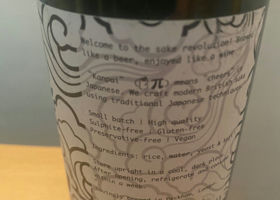 Welcome to the sake revolution! Brewed
like a beer, enjoyed like a wine.
"Kanpai" means "cheers" in
Japanese. We craft modern British sake
using traditional Japanese techniques.
Small batch | High quality
Sulphite-free | Gluten-free
Preservative-free | Vegan
Ingredients: rice, water, yeast &
Store upright in a cool, dark place.
After opening, refrigerate and
within a week.
brewed in